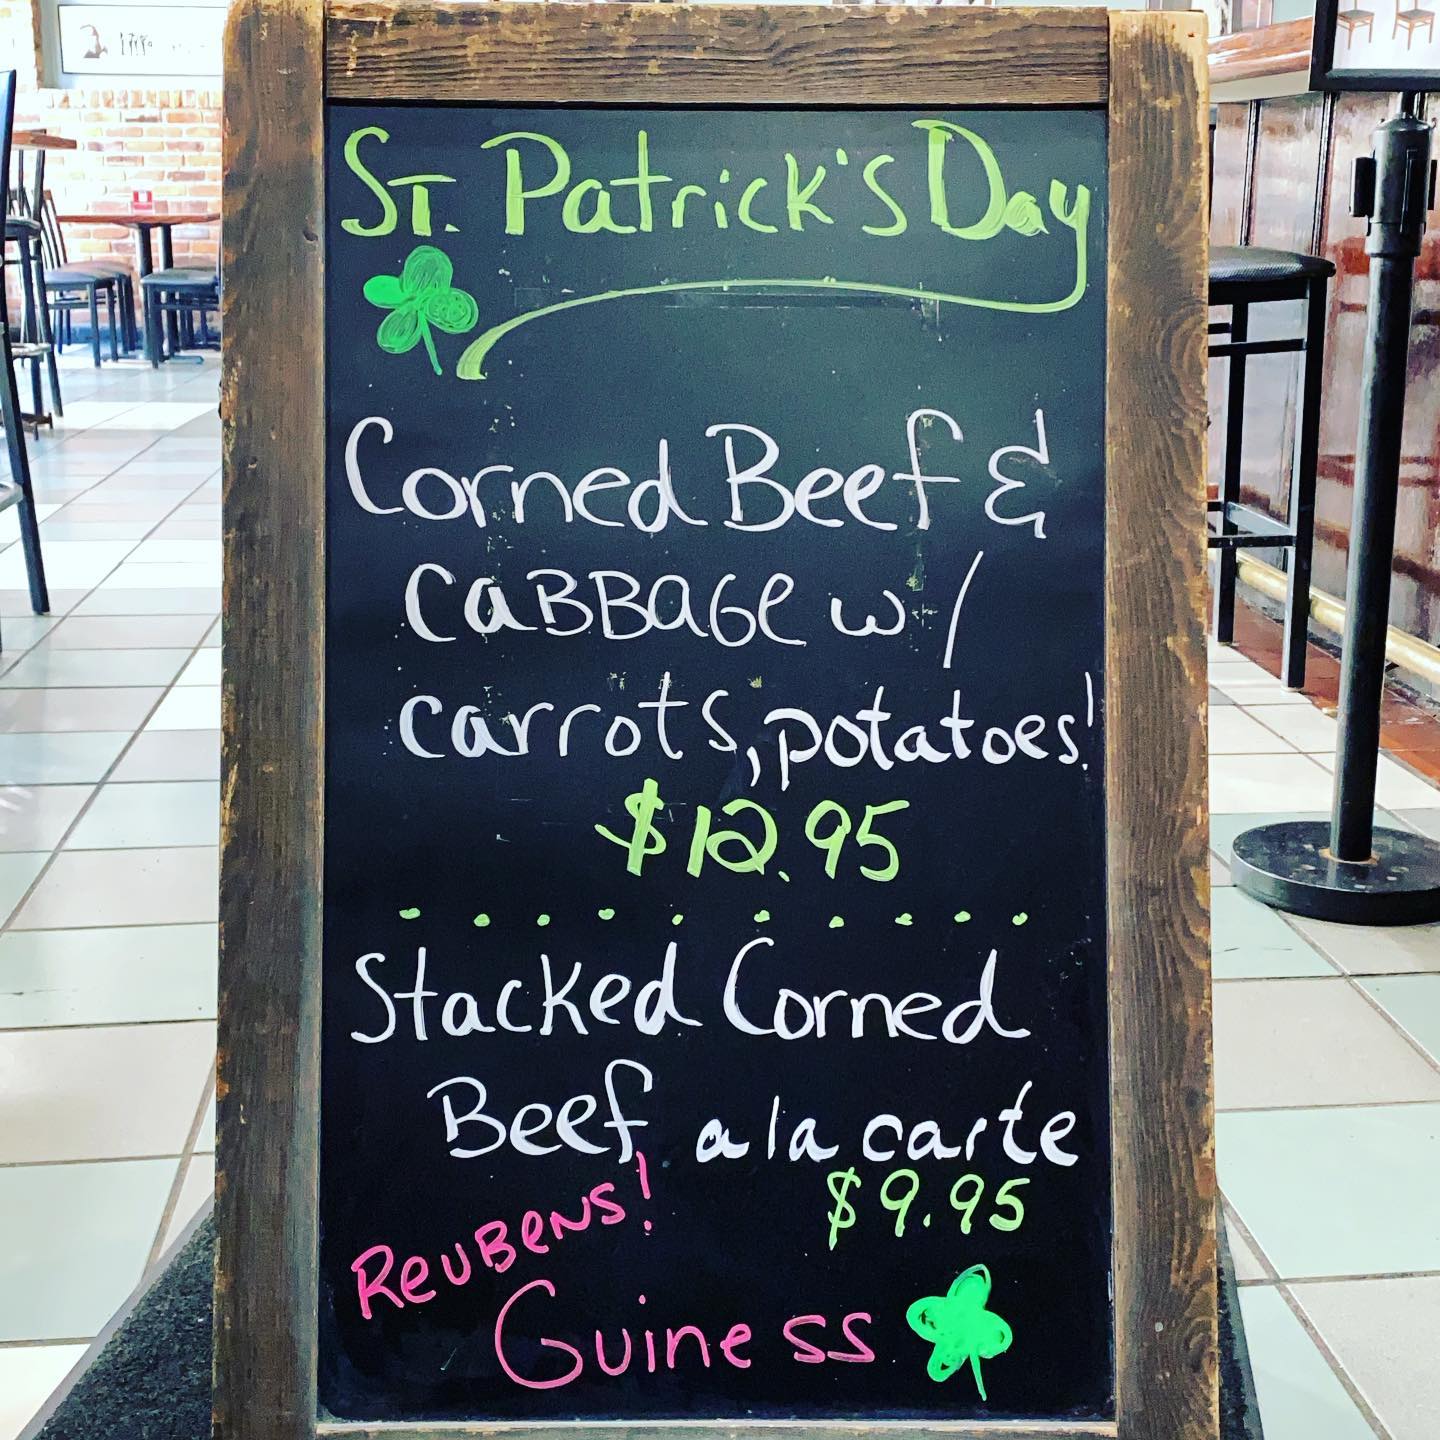 St. Patrick's Day
Corned Beef &
CaBBaGe w/
carrots, potatoes!
$12.95
Stacked Corned
Beef a la carte
$9.95
ReuBeNS!
Guiness